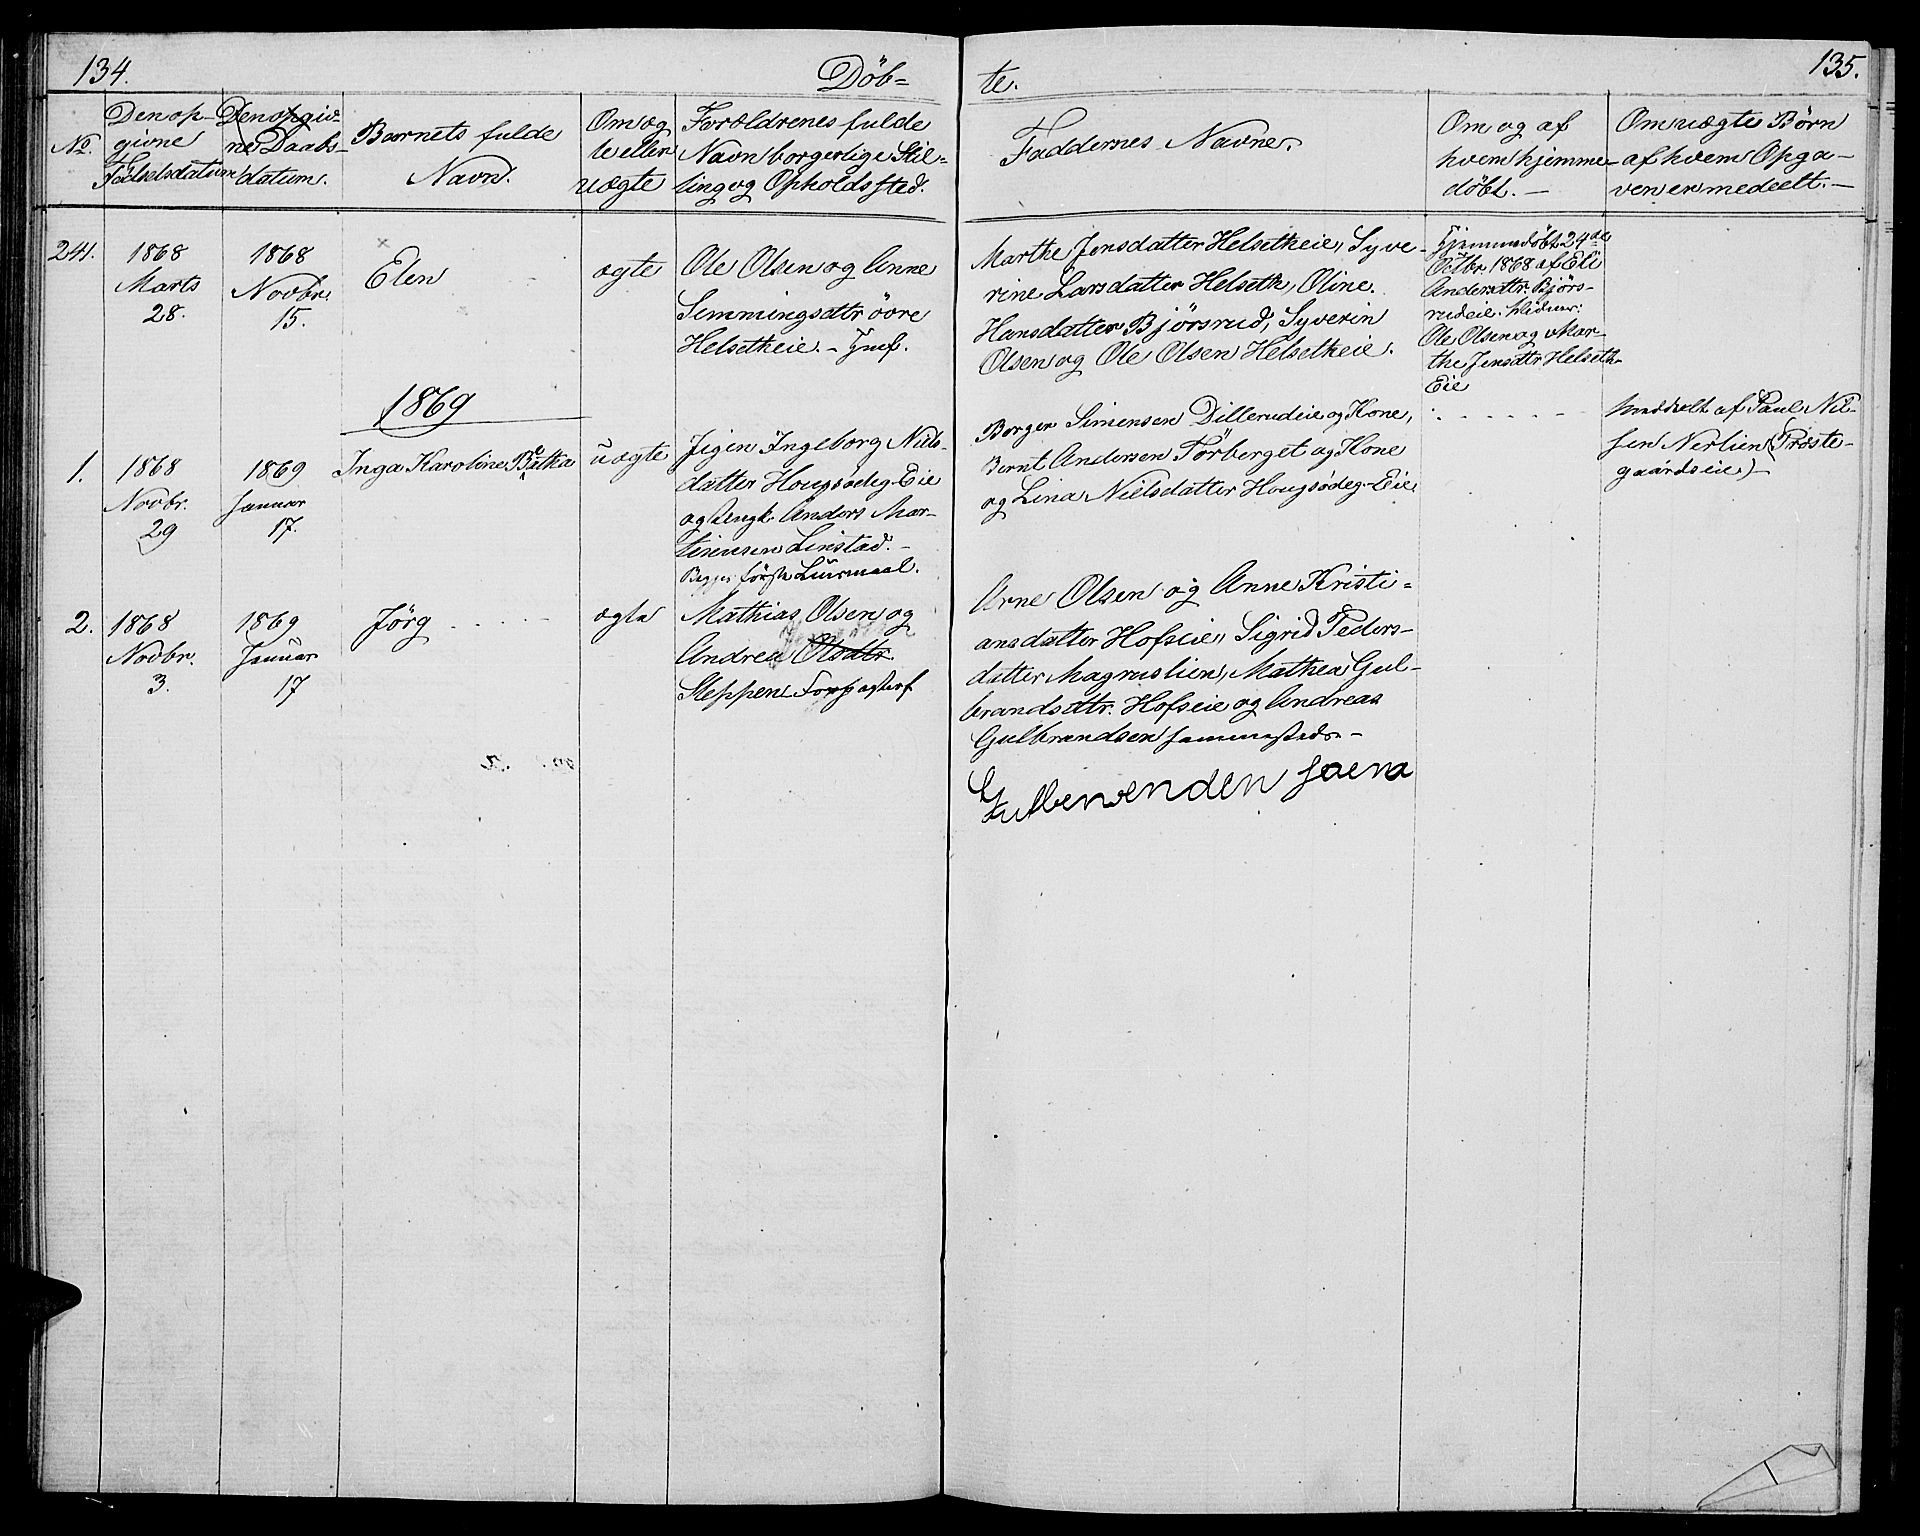 134.
Döb=
te.
135.
No.
Den op-
givne
Födselsdatum
Den opgiv-
ne Daabs-
datum.
Barnets fulde
Navn.
Om æg
te eller
uægte
Forældrenes fulde
Navn borgerlige Stil-
ling og Opholdssted.
Faddernes Navne.
Om og af
hvem hjemme-
döbt. —
Om uægte Börn
af hvem Opga-
ven er meddelt. —
24.
1868
Marts
28.
1868
Novbr.
15.
Elen
ægte
Ole Olsen og Anne
Simmingsdtr övre
Helsetheie. -
Marthe Jensdatter Helsetheie, Syve-
rine Larsdatter Helseth, Oline
Hansdatter Björsrud, Syverin
Olsen og Ole Olsen Helsetheie.
Hjemmedöbt 24de
Octbr 1868 af Eli
Andersdtr. Björs-
rudeie. Vidner:
Ole Olsen og Mar-
the Jensdtr Helseth-
Eie
1869
1.
1868
Novbr.
29
1869
Januar
17.
Inga Karoline
uægte
Pigen Ingeborg Niels-
datter Hougsödeg. Eie
og Ungk. Anders Mar-
tinusen Linstad. -
Begges förste Leiermaal.
Borger Simensen Dillerudeie og Kone,
Bernt Andersen Törberget og Kone
og Lina Nielsdatter Hougsödeg. Eie
Meddelt af Paul Nil-
sen Nerlien (Præste-
gaardseie) -
2.
1868
Novbr.
3.
1869
Januar
17
Jörg
ægte
Mathias Olsen og
Andrea Olsdtr.
Steppen Forpagter
Arne Olsen og Anne Kristi-
ansdatter Hofseie, Sigrid Peders-
datter Magnuslien, Mathea Gul-
brandsdtr. Hofseie og Andreas
Gulbrandsen sammesteds. -